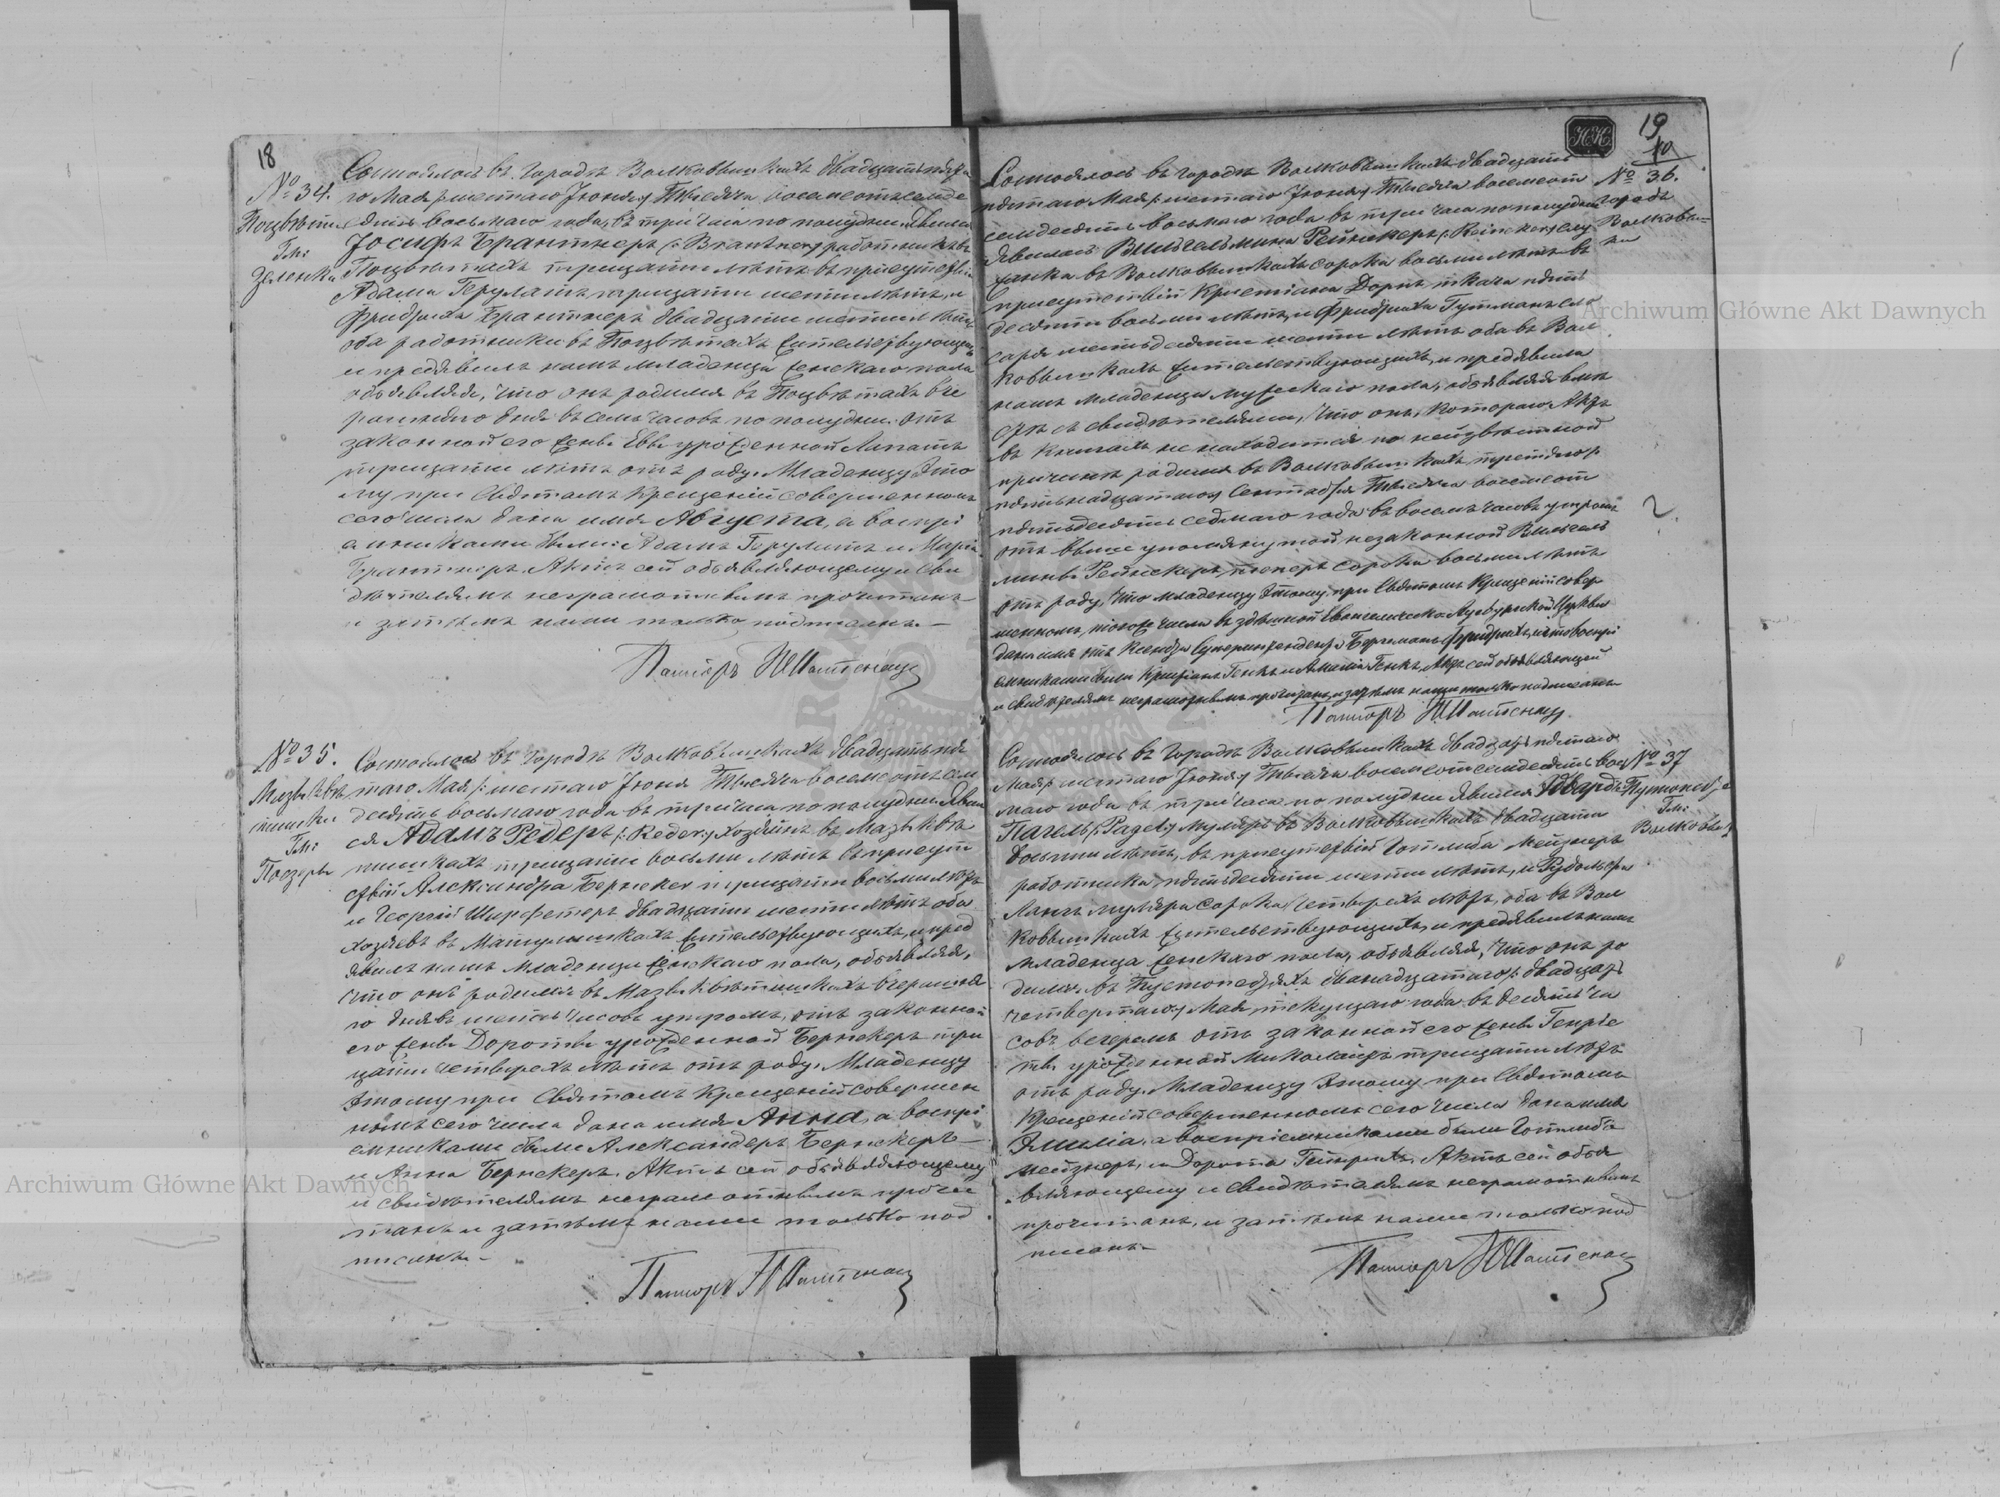 18
№ 34.
Поцвѣти
Гм:
Зеленка
Состоялось въ городѣ Волковышкахъ двадцать пята
го Мая /:шестаго Іюня:/ Тысяча восемсотъ семде
сятъ восьмаго года, въ три часа по полудни. Явился
Іосифъ Брантнеръ /:Brantner:/ работникъ въ
Поцвѣтахъ тридцати лѣтъ въ присутствіи
Адама Герулатъ тридцати шести лѣтъ, и
Фридриха Брантнеръ двадцати шести лѣтъ
оба работники въ Поцвѣтахъ жительствующихъ
и предъявилъ намъ младенца женскаго пола
объявляя, что онъ родился въ Поцвѣтахъ вче
рашняго дня въ семь часовъ по полудни отъ
законной его жены Евы урожденной Липатъ
тридцати лѣтъ отъ роду. Младенцу Это
му при Святомъ Крещеніи совершенномъ
сего числа дано имя Августа, а воспрі
емниками были: Адамъ Герулатъ и Марія
Брантнеръ. Актъ сей объявляющему и Сви
дѣтелямъ неграмотнымъ прочитанъ
и затѣмъ нами только подписанъ.
Пасторъ
№ 35.
Гм:
Поезеры
Состоялось въ городѣ Волковышкахъ двадцать пя
таго Мая /:шестаго Іюня Тысяча восемсотъ сем
десятъ восьмаго года въ три часа по полудни. Явил
ся Адамъ Редеръ /:Reder:/ Хозяинъ въ Мазыквѣ
тишкахъ тридцати восьми лѣтъ въ присут
ствіи Александра Бернекер тридцати восьми лѣтъ
и Георгій Ширфетеръ двадцати шести лѣтъ оба
хозяевъ въ Матулишкахъ жительствующихъ, и пред
явилъ намъ младенца женскаго пола, объявляя,
что онъ родился въ Мазыквѣтишкахъ вчерашня
го дня въ шесть часовъ утромъ, отъ законной
его жены Доротеи урожденной Бернекеръ три
цати четырехъ лѣтъ отъ роду. Младенцу
Этому при Святомъ Крещеніи совершен
номъ сего числа дано имя Анна, а воспрі
емниками были Александеръ Бернекеръ
и Анна Бернекеръ. Актъ сей объявляющему
и свидѣтелямъ неграмотнымъ прочи
танъ и затѣмъ нами только под
писанъ.
Пасторъ
НК
19
10
№ 36.
городъ
Волковы=
ки
Состоялось въ городѣ Волковышкахъ двадцать
пятаго Мая /:шестаго Іюня:/ Тысяча восемсотъ
семдесятъ восьмаго года въ три часа по полудни
Явилась Вильгельмина Рейнкеръ /:Reinker:/ слу
жанка въ Волковышкахъ сорока восьми лѣтъ въ
присутствіи Кристіана Дорнъ ткача пять
десяти восьми лѣтъ, и Фридриха Гутманъ сле
саря шестьдесяти шести лѣтъ оба въ Вол
ковышкахъ жительствующихъ, и предявила
намъ младенца мужескаго пола, объявляя вмѣ
стѣ съ свидѣтелями, что онъ, котораго Актъ
въ книгахъ не находится по неизвѣстной
причинѣ родился въ Волковышкахъ третяго /:
пятьнадцатаго:/ Сентября Тысяча восемсотъ
пятьдесятъ седмаго года въ восемь часовъ утромъ
отъ выше упомянутой незаконной Вильгель
мины Рейнкеръ, теперь сорока восьми лѣтъ
отъ роду, что младенцу Этому при Святомъ Крещеніи совер
шенномъ, того же числа въ здѣшной Евангелическо Аугсбургской Церкви
дано имя отъ Ксендза Суперинтендента Бергманъ Фридрихъ, что воспрі
емниками были Кристіанъ Генкъ и Амалія Генкъ. Актъ сей объявляющей
и свидѣтелямъ неграмотнымъ прочитанъ, и затѣмъ нами только подписанъ
Пасторъ
№ 37
Гм:
Состоялось въ городѣ Волковышкахъ двадцать пятаго
Мая /: шестаго Іюня:/ Тысяча восемсотъ семдесятъ вось
маго года въ три часа по полудни Явился Эдвардъ
Пагель /:Pagel:/ муляръ въ Волковышкахъ двадцати
восьми лѣтъ, въ присутствіи Готлиба Мейзнеръ
работника пятьдесяти шести лѣтъ, и Рудольфа
Лангъ муляра сорока четырехъ лѣтъ, оба въ Вол
ковышкахъ жительствующихъ, и предявилъ намъ
младенца женскаго пола, объявляя, что онъ ро
дился въ Пустопедзяхъ двѣнадцатаго /: двадцать
четвертаго:/ Мая текущаго года въ десять ча
совъ вечеромъ отъ законной его жены Генріе
ты урожденной Миколайтъ тридцати лѣтъ
отъ роду. Младенцу Этому при Святомъ
Крещеніи совершенномъ сего числа дано имя
Эмилія, а Воспріемниками были Готлибъ
Мейзнеръ, и Дорота Гейнрихъ. Актъ сей объя
вляющему и свидѣтелямъ неграмотнымъ
прочитанъ, и затѣмъ нами только под
писанъ
Пасторъ
Archiwum Główne Akt Dawnych
Archiwum Główne Akt Dawnych